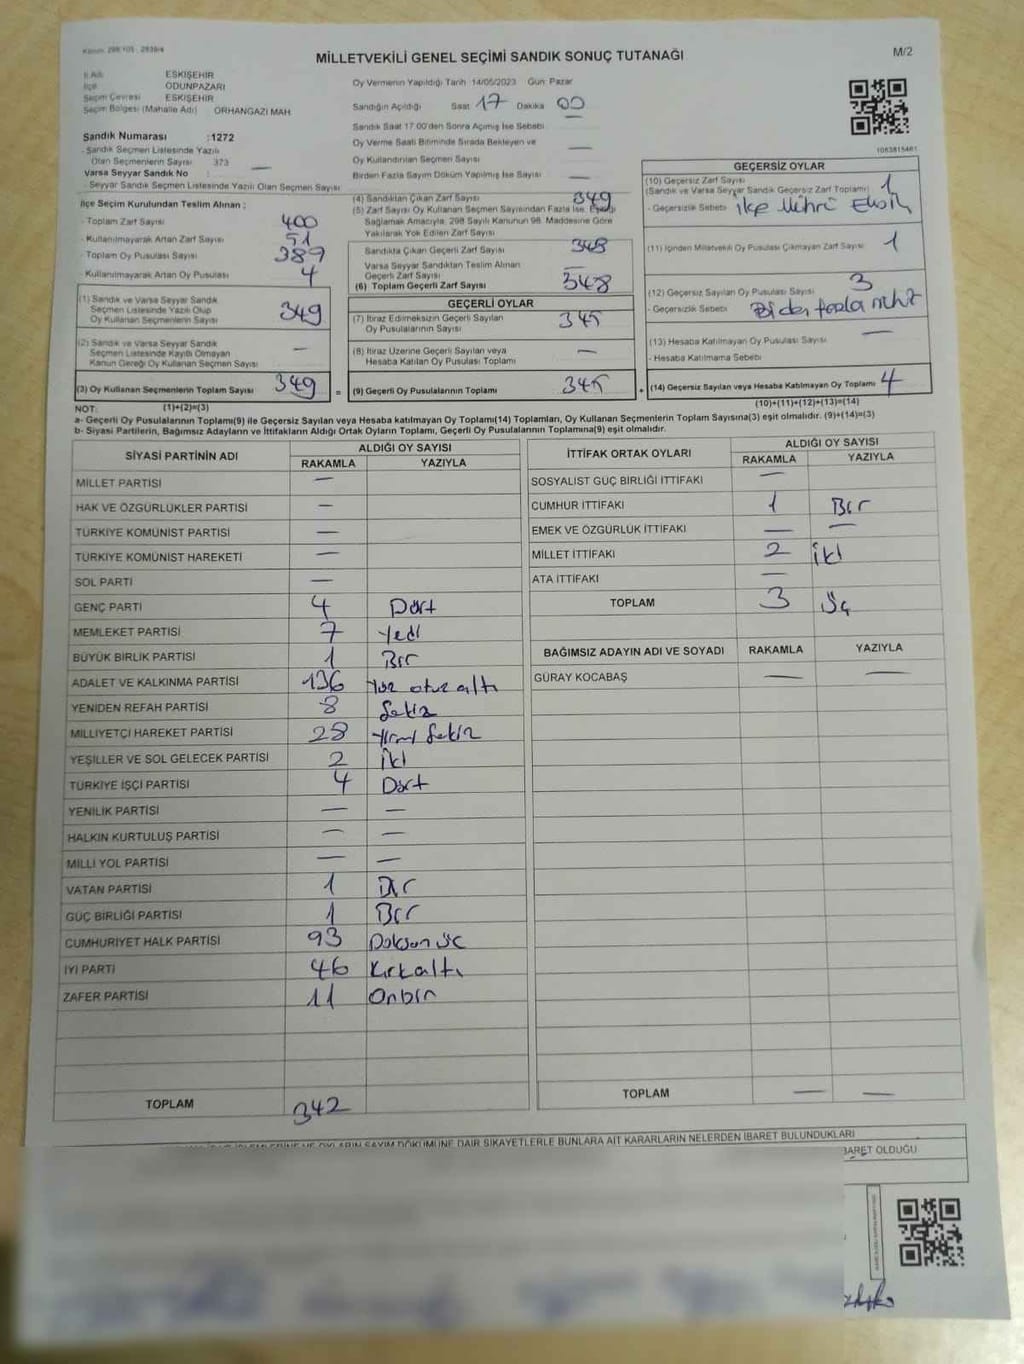 M/2
MİLLETVEKİLİ GENEL SEÇİMİ SANDIK SONUÇ TUTANAĞI
İl Adı ESKİŞEHİR
İlçe ODUNPAZARI
Seçim Çevresi ESKİŞEHİR
Seçim Bölgesi (Mahalle Adı) ORHANGAZİ MAH
Sandık Numarası :1272
- Sandık Seçmen Listesinde Yazılı
Olan Seçmenlerin Sayısı 373
Varsa Seyyar Sandık No —
- Seyyar Sandık Seçmen Listesinde Yazılı Olan Seçmen Sayısı
Oy Vermenin Yapıldığı Tarih 14/05/2023 Gün: Pazar
Sandığın Açıldığı Saat 17 Dakika 00
Sandık Saat 17:00'den Sonra Açılmış İse Sebebi —
Oy Verme Saati Bitiminde Sırada Bekleyen ve
Oy Kullandırılan Seçmen Sayısı —
Birden Fazla Sayım Döküm Yapılmış İse Sayısı —
1083815461
İlçe Seçim Kurulundan Teslim Alınan :
- Toplam Zarf Sayısı 400
- Kullanılmayarak Artan Zarf Sayısı 51
- Toplam Oy Pusulası Sayısı 389
- Kullanılmayarak Artan Oy Pusulası 4
(1) Sandık ve Varsa Seyyar Sandık
Seçmen Listesinde Yazılı Olup
Oy Kullanan Seçmenlerin Sayısı 349
(2) Sandık ve Varsa Seyyar Sandık
Seçmen Listesinde Kayıtlı Olmayan
Kanun Gereği Oy Kullanan Seçmen Sayısı —
(3) Oy Kullanan Seçmenlerin Toplam Sayısı 349 =
(1)+(2)=(3)
(4) Sandıktan Çıkan Zarf Sayısı 349
(5) Zarf Sayısı Oy Kullanan Seçmen Sayısından Fazla İse, Eşitliği
Sağlamak Amacıyla, 298 Sayılı Kanunun 98. Maddesine Göre
Yakılarak Yok Edilen Zarf Sayısı
Sandıkta Çıkan Geçerli Zarf Sayısı 348
Varsa Seyyar Sandıktan Teslim Alınan
Geçerli Zarf Sayısı —
(6) Toplam Geçerli Zarf Sayısı 348
GEÇERLİ OYLAR
(7) İtiraz Edilmeksizin Geçerli Sayılan
Oy Pusulalarının Sayısı 345
(8) İtiraz Üzerine Geçerli Sayılan veya
Hesaba Katılan Oy Pusulası Toplamı —
(9) Geçerli Oy Pusulalarının Toplamı 345 +
GEÇERSİZ OYLAR
(10) Geçersiz Zarf Sayısı
(Sandık ve Varsa Seyyar Sandık Geçersiz Zarf Toplamı) 1
- Geçersizlik Sebebi ilçe Mührü Eksik
(11) İçinden Milletvekili Oy Pusulası Çıkmayan Zarf Sayısı 1
(12) Geçersiz Sayılan Oy Pusulası Sayısı 3
- Geçersizlik Sebebi Birden fazla mühür
(13) Hesaba Katılmayan Oy Pusulası Sayısı —
- Hesaba Katılmama Sebebi
(14) Geçersiz Sayılan veya Hesaba Katılmayan Oy Toplamı 4
(10)+(11)+(12)+(13)=(14)
NOT:
a- Geçerli Oy Pusulalarının Toplamı(9) ile Geçersiz Sayılan veya Hesaba katılmayan Oy Toplamı(14) Toplamları, Oy Kullanan Seçmenlerin Toplam Sayısına(3) eşit olmalıdır. (9)+(14)=(3)
b- Siyasi Partilerin, Bağımsız Adayların ve İttifakların Aldığı Ortak Oyların Toplamı, Geçerli Oy Pusulalarının Toplamına(9) eşit olmalıdır.
SİYASİ PARTİNİN ADI ALDIĞI OY SAYISI
RAKAMLA YAZIYLA
MİLLET PARTİSİ —
HAK VE ÖZGÜRLÜKLER PARTİSİ —
TÜRKİYE KOMÜNİST PARTİSİ —
TÜRKİYE KOMÜNİST HAREKETİ —
SOL PARTİ —
GENÇ PARTİ 4 Dört
MEMLEKET PARTİSİ 7 Yedi
BÜYÜK BİRLİK PARTİSİ 1 Bir
ADALET VE KALKINMA PARTİSİ 136 Yüz otuz altı
YENİDEN REFAH PARTİSİ 8 Sekiz
MİLLİYETÇİ HAREKET PARTİSİ 28 Yirmi Sekiz
YEŞİLLER VE SOL GELECEK PARTİSİ 2 İki
TÜRKİYE İŞÇİ PARTİSİ 4 Dört
YENİLİK PARTİSİ — —
HALKIN KURTULUŞ PARTİSİ — —
MİLLİ YOL PARTİSİ — —
VATAN PARTİSİ 1 Bir
GÜÇ BİRLİĞİ PARTİSİ 1 Bir
CUMHURİYET HALK PARTİSİ 93 Doksan üç
İYİ PARTİ 46 Kırkaltı
ZAFER PARTİSİ 11 Onbir
TOPLAM 342
İTTİFAK ORTAK OYLARI ALDIĞI OY SAYISI
RAKAMLA YAZIYLA
SOSYALİST GÜÇ BİRLİĞİ İTTİFAKI —
CUMHUR İTTİFAKI 1 Bir
EMEK VE ÖZGÜRLÜK İTTİFAKI — —
MİLLET İTTİFAKI 2 İki
ATA İTTİFAKI —
TOPLAM 3 Üç
BAĞIMSIZ ADAYIN ADI VE SOYADI RAKAMLA YAZIYLA
GÜRAY KOCABAŞ — —
TOPLAM — —
OYLARIN SAYIM DÖKÜMÜNE DAİR ŞİKAYETLERLE BUNLARA AİT KARARLARIN NELERDEN İBARET BULUNDUKLARI
BARET OLDUĞU